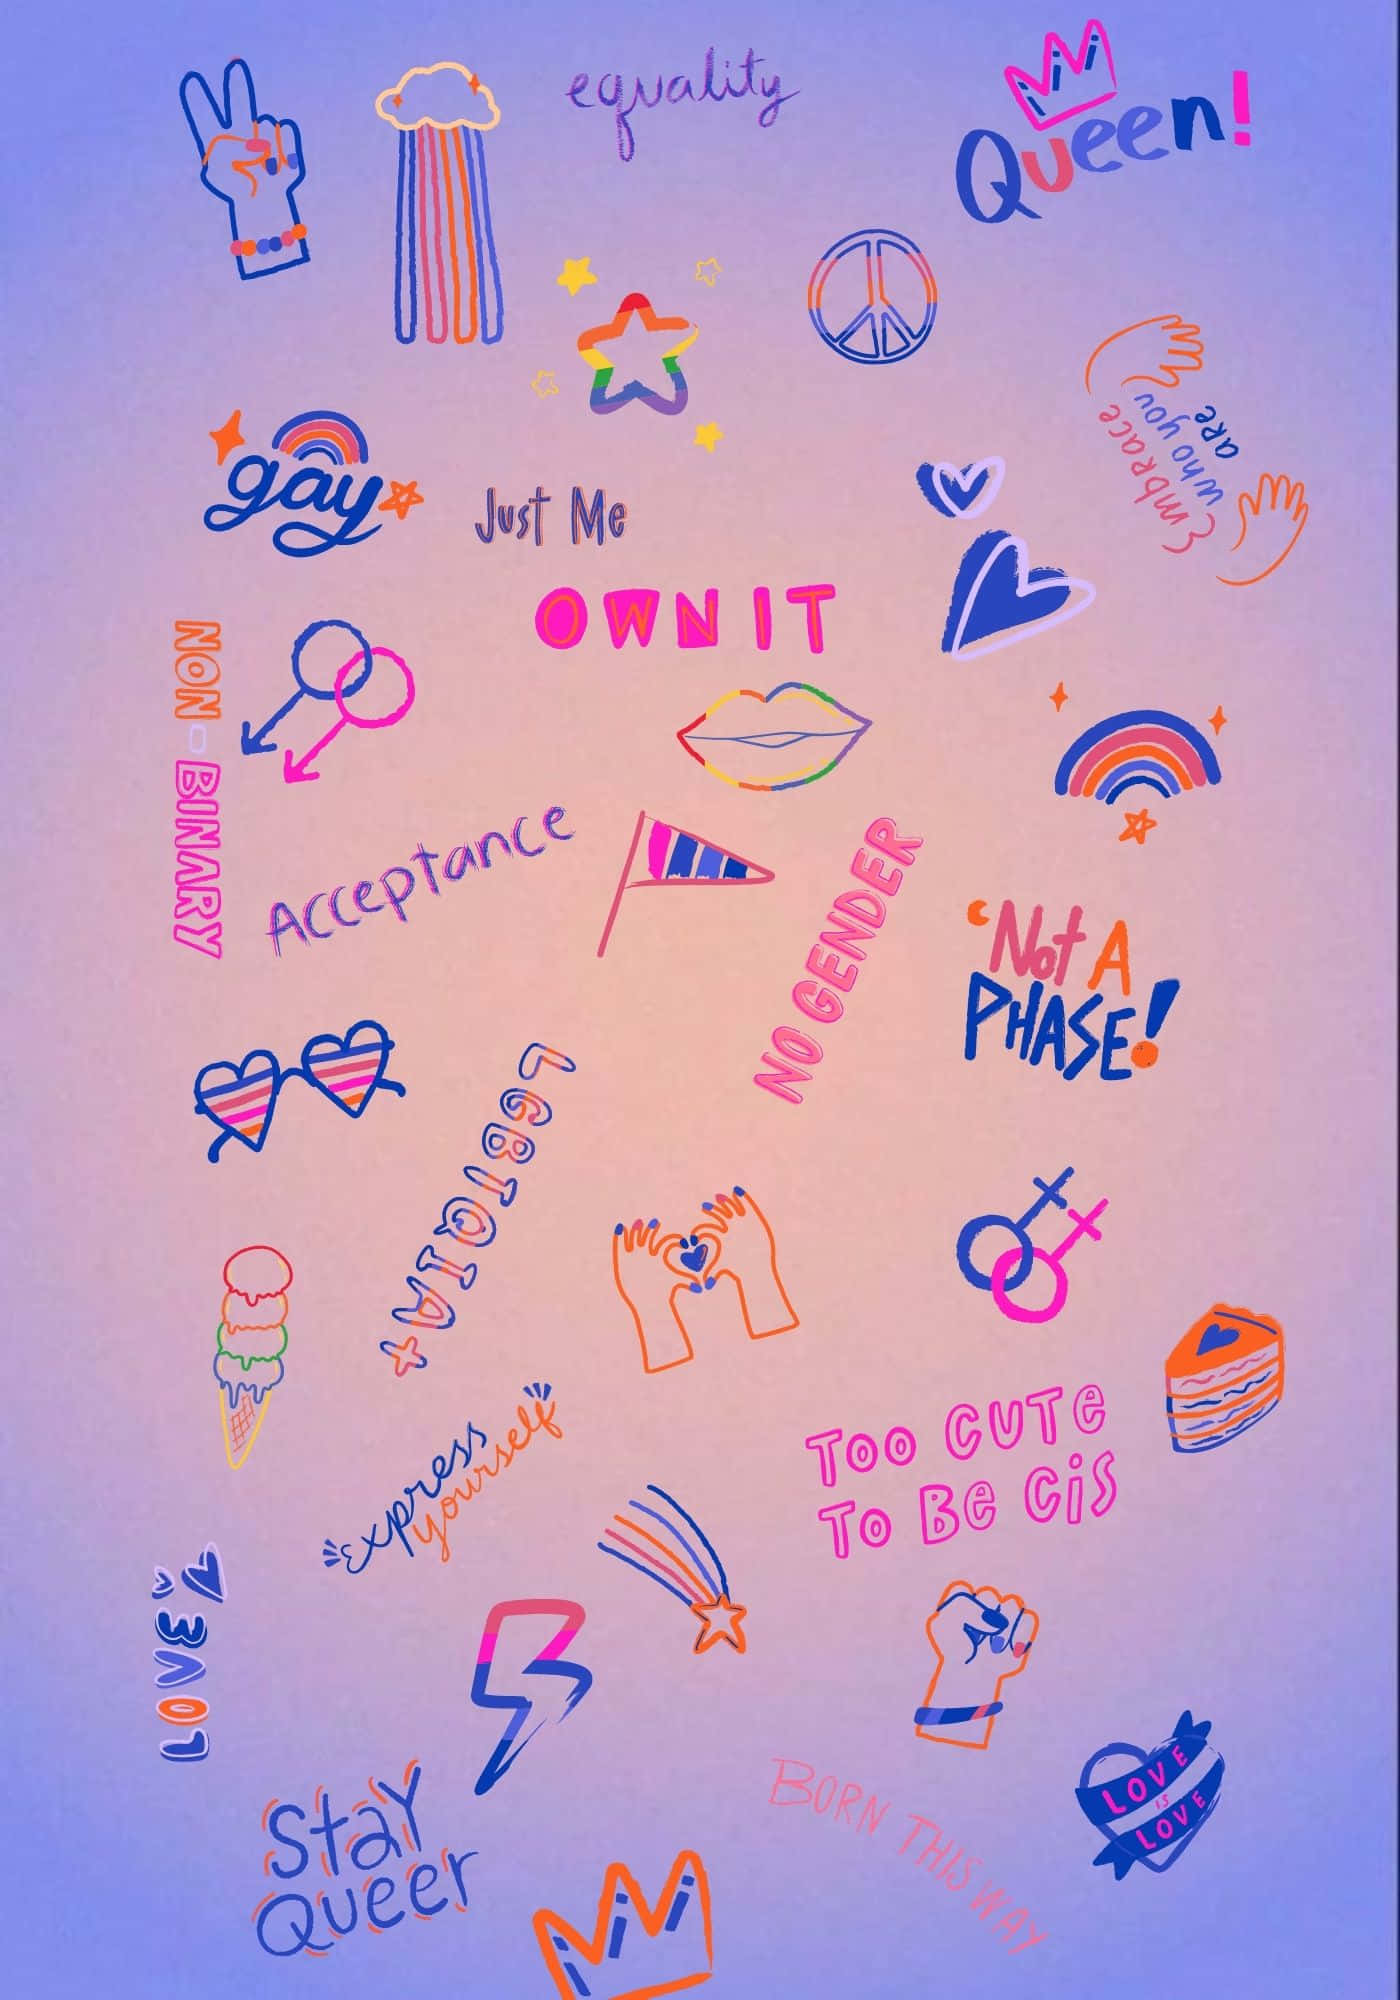 equality
Queen!
Embrace
who you
are
gay
Just Me
OWN IT
NON-BINARY
Acceptance
NO GENDER
'Not A
PHASE!
LGBTQIA+
Too CUTe
To Be CiS
express
yourself
LOVE
Stay
Queer
BORN THIS WAY
LOVE
IS
LOVE